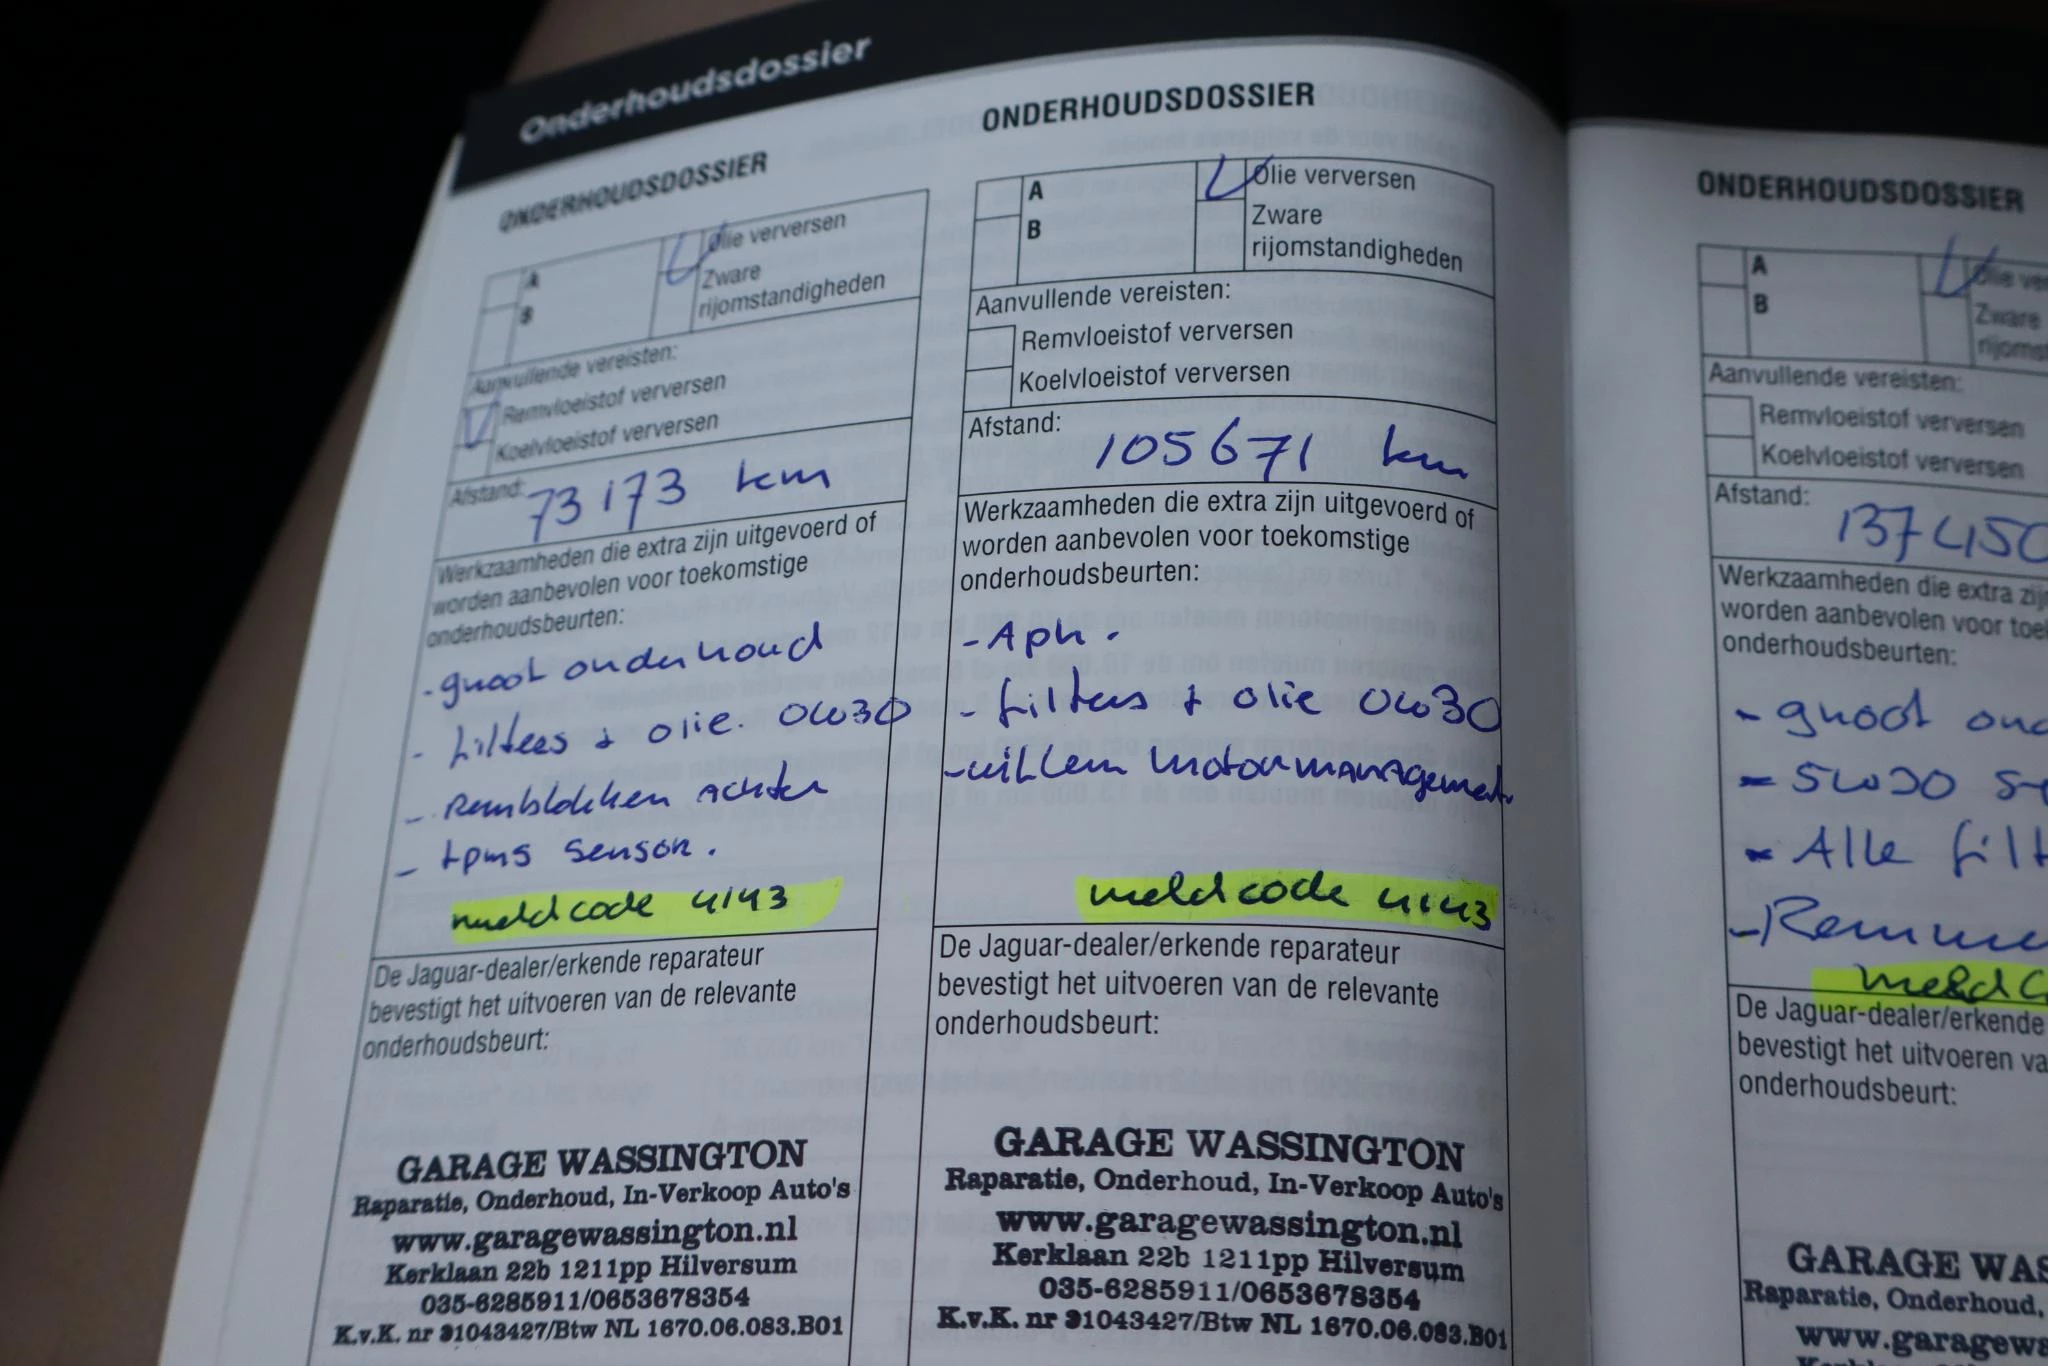 Onderhoudsdossier
ONDERHOUDSDOSSIER
A
Olie verversen
B
Zware
rijomstandigheden
Aanvullende vereisten:
Remvloeistof verversen
Koelvloeistof verversen
Afstand: 73173 km
Werkzaamheden die extra zijn uitgevoerd of
worden aanbevolen voor toekomstige
onderhoudsbeurten:
- groot onderhoud
- filters + olie. 0W30
- Remblokken achter
- tpms sensor.
meldcode 4143
De Jaguar-dealer/erkende reparateur
bevestigt het uitvoeren van de relevante
onderhoudsbeurt:
GARAGE WASSINGTON
Raparatie, Onderhoud, In-Verkoop Auto's
www.garagewassington.nl
Kerklaan 22b 1211pp Hilversum
035-6285911/0653678354
K.v.K. nr 31043427/Btw NL 1670.06.083.B01
ONDERHOUDSDOSSIER
A
Olie verversen
B
Zware
rijomstandigheden
Aanvullende vereisten:
Remvloeistof verversen
Koelvloeistof verversen
Afstand: 105671 km
Werkzaamheden die extra zijn uitgevoerd of
worden aanbevolen voor toekomstige
onderhoudsbeurten:
- Apk.
- filters + olie 0W30
- uitlezen motormanagement
meldcode 4143
De Jaguar-dealer/erkende reparateur
bevestigt het uitvoeren van de relevante
onderhoudsbeurt:
GARAGE WASSINGTON
Raparatie, Onderhoud, In-Verkoop Auto's
www.garagewassington.nl
Kerklaan 22b 1211pp Hilversum
035-6285911/0653678354
K.v.K. nr 31043427/Btw NL 1670.06.083.B01
ONDERHOUDSDOSSIER
A
Olie ve
B
Zware
rijoms
Aanvullende vereisten:
Remvloeistof verversen
Koelvloeistof verversen
Afstand: 137450
Werkzaamheden die extra zij
worden aanbevolen voor toe
onderhoudsbeurten:
- groot on
- 5W30
- Alle filt
- Remm
meldc
De Jaguar-dealer/erkende
bevestigt het uitvoeren va
onderhoudsbeurt:
GARAGE WAS
Raparatie, Onderhoud,
www.garagewa